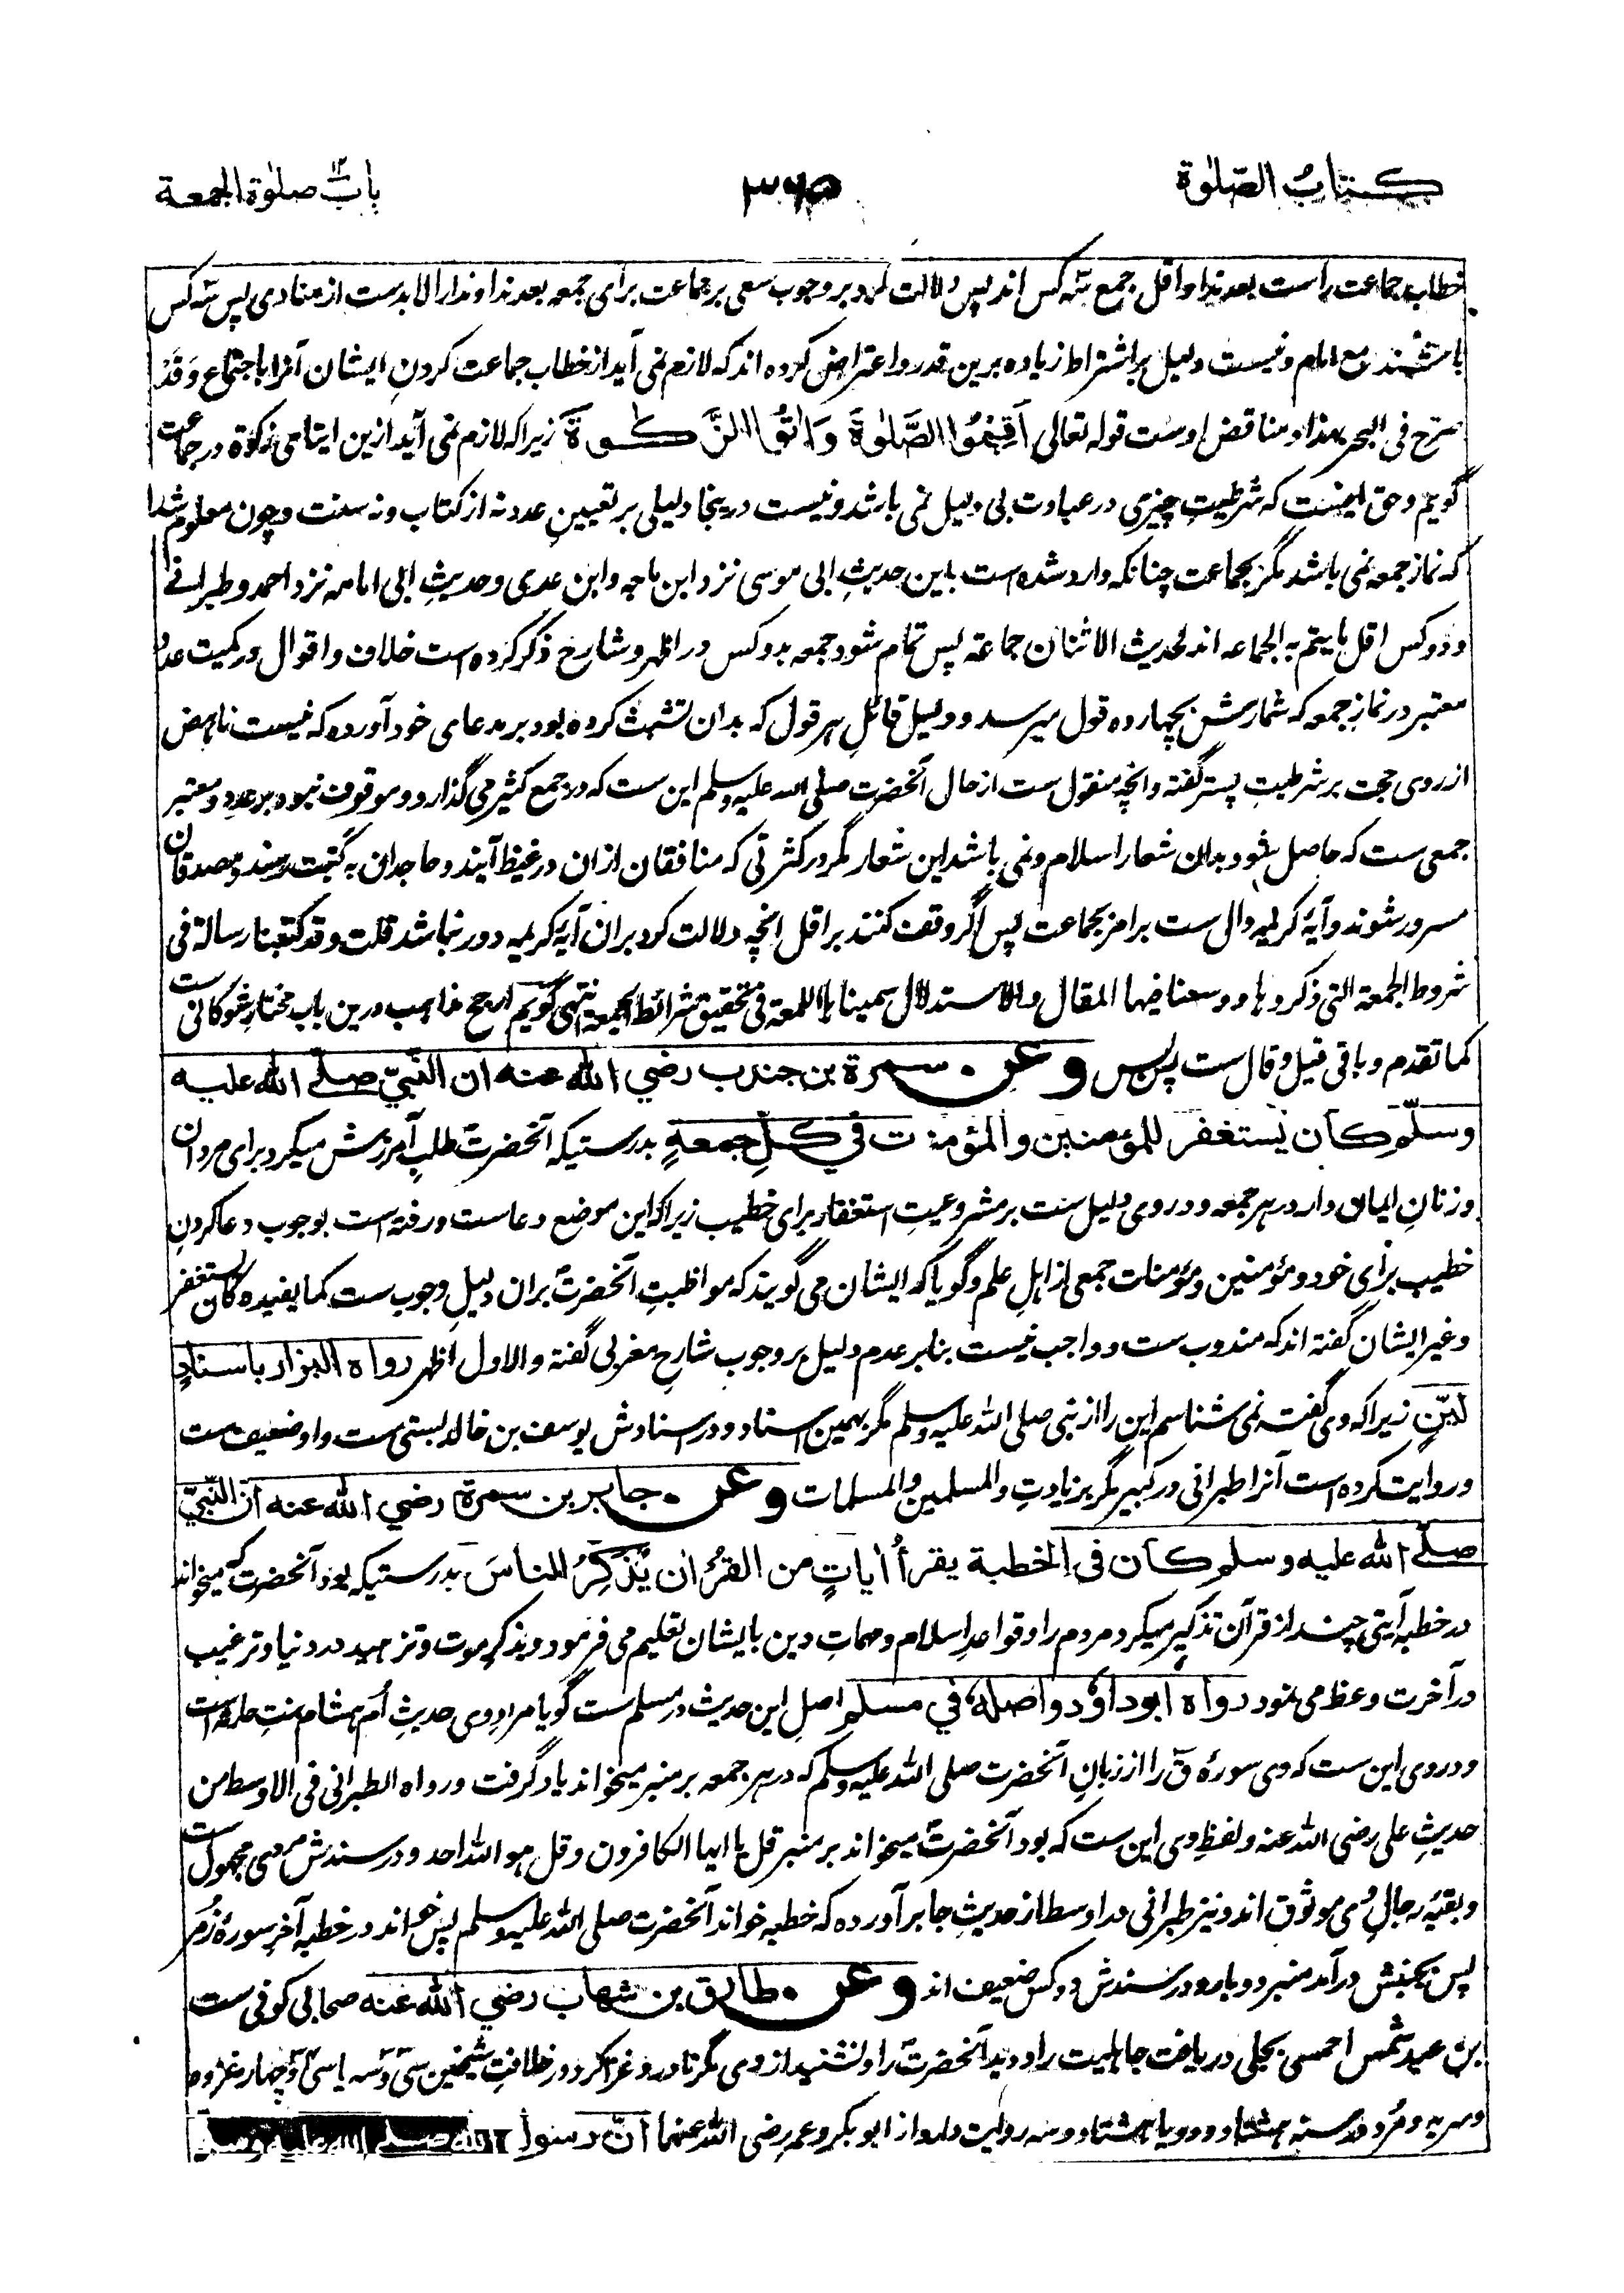 كتاب الصّلوٰة
۳۶۵
باب صلوٰة الجمعة
خطاب جماعت راست بعد ندا و اقل جمع سه کس اند پس دلالت کرد بر وجوب سعی بر جماعت برای جمعه بعد ندا و ندا را لابدست از منادی پس سه کس
باشند مع امام و نیست دلیل بر اشتراط زیاده برین قدر و اعتراض کرده اند که لازم نمی آید از خطاب جماعت کردنِ ایشان آنرا باجتماع وَقَدْ
صرّح فی البحر بهذا و مناقض اوست قوله تعالی أَقِيْمُوا الصَّلٰوةَ وَاٰتُوا الزَّكٰوةَ زیرا که لازم نمی آید ازین ایتای زکوٰة در جماعت
گویم و حق اینست که شرطیتِ چیزی در عبادت بی دلیل نمی باشد و نیست درینجا دلیلی بر تعیینِ عدد نه از کتاب و نه سنت و چون معلوم شد
که نماز جمعه نمی باشد مگر بجماعت چنانکه وارد شده است باین حدیثِ ابی موسی نزد ابن ماجه و ابن عدی و حدیثِ ابی امامه نزد احمد و طبرانی
و دو کس اقل ما یتم به الجماعه اند لحدیث الاثنان جماعة پس تمام شود جمعه بدو کس در اظهر و شارح ذکر کرده است خلاف و اقوال در کمیت عدد
معتبر در نمازِ جمعه که شمارش بچهارده قول میرسد و دلیل قائلِ هر قول که بدان تشبث کرده بود بر مدعای خود آورده که نیست ناهض
از روی حجت بر شرطیت پستر گفته و آنچه منقول ست از حال آنحضرت صلی الله علیه وسلم این ست که در جمع کثیر می گذارد و موقوف نبوده بر عدد و معتبر
جمعی ست که حاصل شود بدان شعار اسلام و نمی باشد این شعار مگر در کثرتی که منافقان ازان در غیظ آیند و جاحدان به کبت رسند و مصدقان
مسرور شوند و آیۀ کریمه دال ست بر امر بجماعت پس اگر وقف کنند بر اقل آنچه دلالت کرد بران آیۀ کریمه دور نباشد قلت و قد کتبنا رسالة فی
شروط الجمعة التی ذکروها و وسعنا فیها المقال والاستدلال سمیناها اللمعة فی تحقیق شرائط الجمعة انتهی گویم ارجح مذاهب درین باب مختار شوکانی ست
کما تقدم و باقی قیل و قال ست پس بس وعن سمرة بن جندب رضي الله عنه ان النّبيّ صلّى الله عليه
وسلّم كان يَستغفر للمؤمنين والمؤمنات في كلِّ جمعةٍ بدرستیکه آنحضرتؐ طلبِ آمرزش میکرد برای مردان
و زنانِ ایمان دار در هر جمعه و در وی دلیل ست بر مشروعیتِ استغفار برای خطیب زیرا که این موضع دعاست و رفته است بوجوب دعا کردنِ
خطیب برای خود و مؤمنین و مؤمنات جمعی از اهلِ علم و گویا که ایشان می گویند که مواظبتِ آنحضرتؐ بران دلیلِ وجوب ست کما یفیده کان یستغفر
و غیر ایشان گفته اند که مندوب ست و واجب نیست بنا بر عدم دلیل بر وجوب شارح مغربی گفته و الاول اظهر رواه البزار باسنادٍ
ليّنٍ زیرا که وی گفت نمی شناسم این را از نبی صلی الله علیه وسلم مگر بهمین اسناد و در اسنادش یوسف بن خالد البستی ست و او ضعیف ست
و روایت کرده است آنرا طبرانی در کبیر مگر بزیادتِ والمسلمین والمسلمات وعن جابر بن سمرة رضي الله عنه انّ النّبيّ
صلّى الله عليه وسلم كان فى الخطبة يقرأ اٰياتٍ من القرُاٰن يُذكِّرُ الناسَ بدرستیکه بود آنحضرت که میخواند
در خطبه آیتی چند از قرآن تذکیر میکرد مردم را و قواعدِ اسلام و مهماتِ دین بایشان تعلیم می فرمود و بذکرِ موت و تزهید در دنیا و ترغیب
در آخرت وعظ می نمود رواه ابو داوٗد واصله في مسلم اصلِ این حدیث در مسلم ست گویا مرادِ وی حدیثِ اُم هشام بنتِ حارثه است
و در وی این ست که وی سورۀ ق را از زبانِ آنحضرت صلی الله علیه وسلم که در هر جمعه بر منبر میخواند یاد گرفت و رواه الطبرانی فی الاوسط من
حدیثِ علی رضی الله عنه و لفظِ وی این ست که بود آنحضرتؐ میخواند بر منبر قل یا ایها الکافرون و قل هو الله احد و در سندش مردی مجهول ست
و بقیۀ رجالِ وی موثوق اند و نیز طبرانی در اوسط از حدیثِ جابر آورده که خطبه خواند آنحضرت صلی الله علیه وسلم پس خواند در خطبه آخرِ سورۀ زُمر
پس بجنبش درآمد منبر دو بار و در سندش دو کس ضعیف اند وعن طارق بن شهاب رضي الله عنه صحابی کوفی ست
ابن عبد شمس احمسی بجلی دریافت جاهلیت را و دید آنحضرتؐ را و نشنید از وی مگر نادر و غزا کرد در خلافتِ شیخین سی و سه یا سی و چهار غزوه
و سریه و مُرد در سنه هشتاد و دو یا هشتاد و سه روایت دارد از ابو بکر و عمر رضی الله عنهما انّ رسول الله صلى الله عليه وسلم